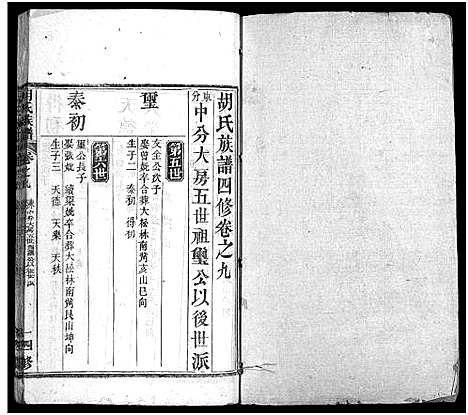 胡氏族譜四修卷之九
東分中分大房五世祖璽公以後世派
第五世
璽
文全公次子
娶曾娓卒合葬大松林南嶌亥山巳向
生子二 泰初 得初
第六世
泰初
璽公長子
娶張娓 續梁娓卒合葬大松林南嶌艮山坤向
生子三 天德 天樂 天秋
胡氏族譜
卷之九
四修